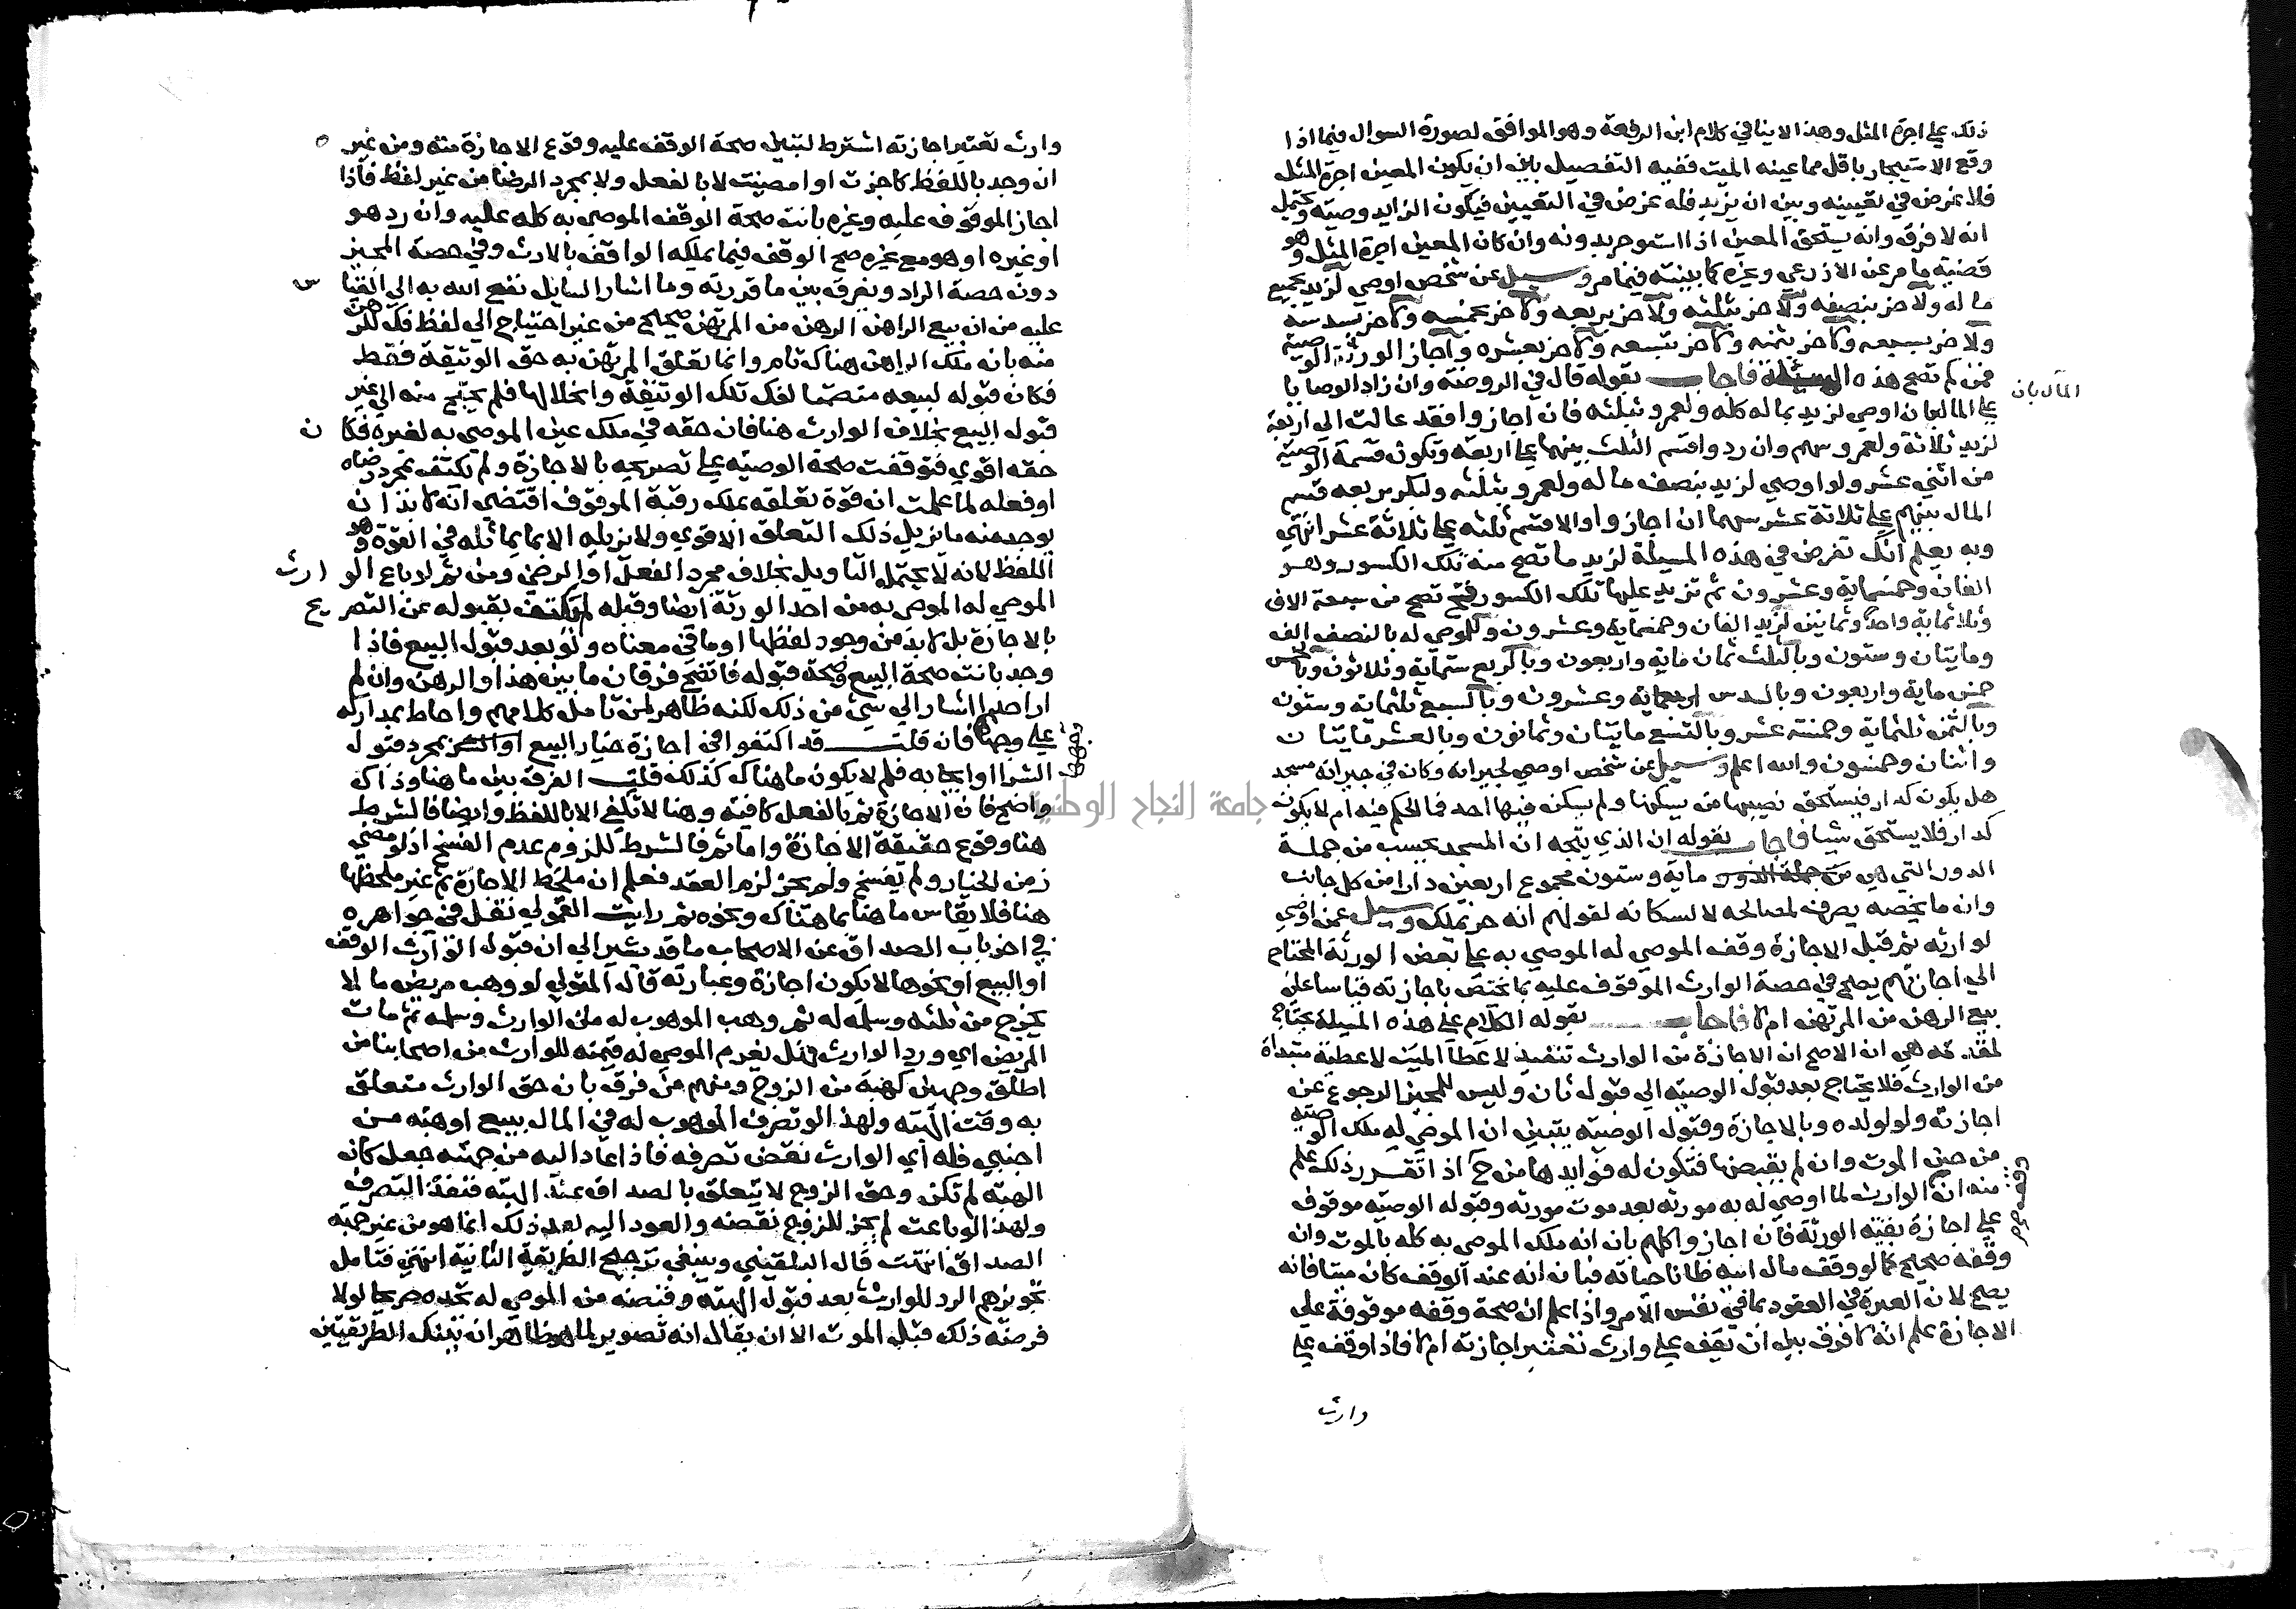 ذلك علي اجرة المثل وهذا لا ينافي كلام ابن الرفعة وهو الموافق لصورة السوال فيما اذا
وقع الاستيجار باقل مما عينه الميت ففيه التفصيل بين ان يكون المعين اجرة المثل
فلا غرض في تعيينه وبين ان يزيد فله غرض في التعيين فيكون الزايد وصية ويحتمل
انه لا فرق وانه يستحق المعين اذا استوجر بدونه وان كان المعين اجرة المثل وهو
قضية ما مر عن الاذرعي وغيره كما بينته فيما مر وسيل عن شخص اوصي لزيد بجميع
ما له ولاخر بنصفه ولاخر بثلثه ولاخر بربعه ولاخر بخمسه ولاخر بسدسه
ولاخر بسبعه ولاخر بثمنه ولاخر بتسعه ولاخر بعشره واجاز الورثة الوصية
فمن كم تصح هذه المسئلة فاجاب بقوله قال في الروضة وان زاد الوصايا
علي المال بان اوصي لزيد بماله كله ولعمرو بثلثه فان اجازوا فقد عالت الي اربعة
المال بان
لزيد ثلاثة ولعمرو سهم وان ردوا قسم الثلث بينهما علي اربعة وتكون قسمة الوصية
من اثني عشر ولو اوصي لزيد بنصف ماله ولعمرو بثلثه ولبكر بربعه قسم
المال بينهم علي ثلاثة عشر سهما ان اجازوا والا قسم ثلثه علي ثلاثة عشر انتهي
وبه يعلم انك تفرض في هذه المسيلة لزيد ما تصح منه تلك الكسور وهو
الفان وخمسماية وعشرون ثم تزيد عليها تلك الكسور فتصح من سبعة الاف
وثلاثماية واحد وثمانين لزيد الفان وخمسماية وعشرون وللموصي له بالنصف الف
ومايتان وستون وبالثلث ثمان ماية واربعون وبالربع ستماية وثلاثون وبالخمس
خمس ماية واربعون وبالسدس اربعماية وعشرون وبالسبع ثلثماية وستون
وبالثمن ثلثماية وخمسة عشر وبالتسع مايتان وثمانون وبالعشر مايتان
واثنان وخمسون والله اعلم وسيل عن شخص اوصي لجيرانه وكان في جيرانه مسجد
هل يكون كدار فيستحق نصيبها من يسكنها ولم يسكن فيها احد فما الحكم فيه ام لا يكون
كدار فلا يستحق شيا فاجاب بقوله ان الذي يتجه ان المسجد يحسب من جملة
الدور التي هي ماية وستون مجموع اربعين دارا من كل جانب
وان ما يخصه يصرف لمصالحه لا لسكانه لقولهم انه حر يملك وسيل عمن اوصي
لوارثه ثم قبل الاجازة وقف الموصي له الموصي به علي بعض الورثة المحتاج
الي اجازتهم يصح في حصة الوارث الموقوف عليه بما يختص باجازته قياسا علي
بيع الرهن من المرتهن ام لا فاجاب بقوله الكلام علي هذه المسيلة يحتاج
لمقدمة هي ان الاصح ان الاجازة من الوارث تنفيذ لاعطا الميت لا عطية مبتداة
من الوارث فلا يحتاج بعد قبول الوصية الي قبول ثان وليس للمجيز الرجوع عن
اجازته ولو لولده وبالاجازة وقبول الوصية يتبين ان الموصي له ملك الوصية
من حين الموت وان لم يقبضها فتكون له فوايدها من ح اذا تقرر ذلك علم
منه ان الوارث لما اوصي له به مورثه بعد موت مورثه وقبوله الوصية موقوف
علي اجازة بقية الورثة فان اجازوا كلهم بان انه ملك الموصي به كله بالموت وان
وقفه صحيح كما لو وقف مال ابيه ظانا حياته فبان انه عند الوقف كان ميتا فانه
يصح لان العبرة في العقود بما في نفس الامر واذا علم ان صحة وقفه موقوفة علي
الاجازة علم انه لا فرق بين ان يقف علي وارث تعتبر اجازته ام لا فاذا وقف علي
وارث
وارث تعتبر اجازته اشترط لتبين صحة الوقف عليه وقوع الاجازة منه ومن غيره
ان وجد باللفظ كاجزت او امضيت لا بالفعل ولا بمجرد الرضا من غير لفظ فاذا
اجاز الموقوف عليه وغيره بانت صحة الوقف الموصي به كله عليه وان رد هو
او غيره او هو مع غيره صح الوقف فيما يملكه الواقف بالارث وفي حصة المجيز
دون حصة الراد ويفرق بين ما قررته وما اشار السايل نفع الله به الي القياس
عليه من ان بيع الراهن الرهن من المرتهن صحيح من غير احتياج الي لفظ فك للرهن
منه بانه ملك الراهن هناك تام وانما تعلق المرتهن به حق الوثيقة فقط
فكان قبوله لبيعه متضمنا لفك تلك الوثيقة وانحلالها فلم يحتج منه الي غير
قبول البيع بخلاف الوارث هنا فان حقه في ملك عين الموصي به لغيره فكان
حقه اقوي فتوقفت صحة الوصية علي تصريحه بالاجازة ولم يكتف بمجرد رضاه
او فعله لما علمت ان قوة تعلقه بملك رقبة الموقوف اقتضي انه لا بد ان
يوجد منه ما يزيل ذلك التعلق الاقوي ولا يزيله الا بما يماثله في القوة وهو
اللفظ لانه لا يحتمل التاويل بخلاف مجرد الفعل او الرضي ومن ثم لو باع الوارث
الموصي له الموصي به من احد الورثة ايضا وقبله لم يكتف بقبوله عن التصريح
بالاجازة بل لا بد من وجود لفظها او ما في معناه ولو بعد قبول البيع فاذا
وجد بانت صحة البيع وصحة قبوله فاتضح فرقان ما بين هذا والرهن وان لم
ار احدا اشار الي شي من ذلك لكنه ظاهر لمن تامل كلامهم واحاط بمداركه
علي وجهها فان قلت قد اكتفوا في اجازة خيار البيع بمجرد قبول
وجهها
الشرا او ايجابه فلم لا يكون ما هناك كذلك قلت الفرق بين ما هنا وذاك
واضح فان الاجازة ثم بالفعل كافية وهنا لا تكفي الا باللفظ وايضا فالشرط
هنا وقوع حقيقة الاجازة واما ثم فالشرط للزوم عدم الفسخ اذ لو مضي
زمن الخيار ولم يفسخ ولم يجز لزم العقد فعلم ان ملحظ الاجازة ثم غير ملحظها
هنا فلا يقاس ما هنا بما هناك ونحوه ثم رايت القمولي نقل في جواهره
في اخر باب الصداق عن الاصحاب ما قد يشير الي ان قبول الوارث الوقف
او البيع او نحوها لا يكون اجازة وعبارته قال المتولي لو وهب مريض ما لا
يخرج من ثلثه وسلمه له ثم وهب الموهوب له من الوارث وسلمه ثم مات
المريض اي ورد الوارث فهل يغرم الموصي له قيمته للوارث من اصحابنا من
اطلق وجهين كهبة من الزوج ومنهم من فرق بان حق الوارث متعلق
به وقت الهبة ولهذا لو تصرف الموهوب له في المال ببيع او هبة من
اجنبي فله اي الوارث نقض تصرفه فاذا عاد اليه من جهته جعل كان
الهبة لم تكن وحق الزوج لا يتعلق بالصداق عند الهبة فنفذ التصرف
ولهذا لو باعت لم يجز للزوج نقضه والعود اليه بعد ذلك انما هو من غير جهة
الصداق انتهت قال البلقيني وينبغي ترجيح الطريقة الثانية انتهي فتامل
تجويزهم الرد للوارث بعد قبول الهبة وقبضه من الموصي له تجده صريحا لولا
فرضه ذلك قبل الموت الا ان يقال انه تصوير لما هو ظاهر ان تينك الطريقتين